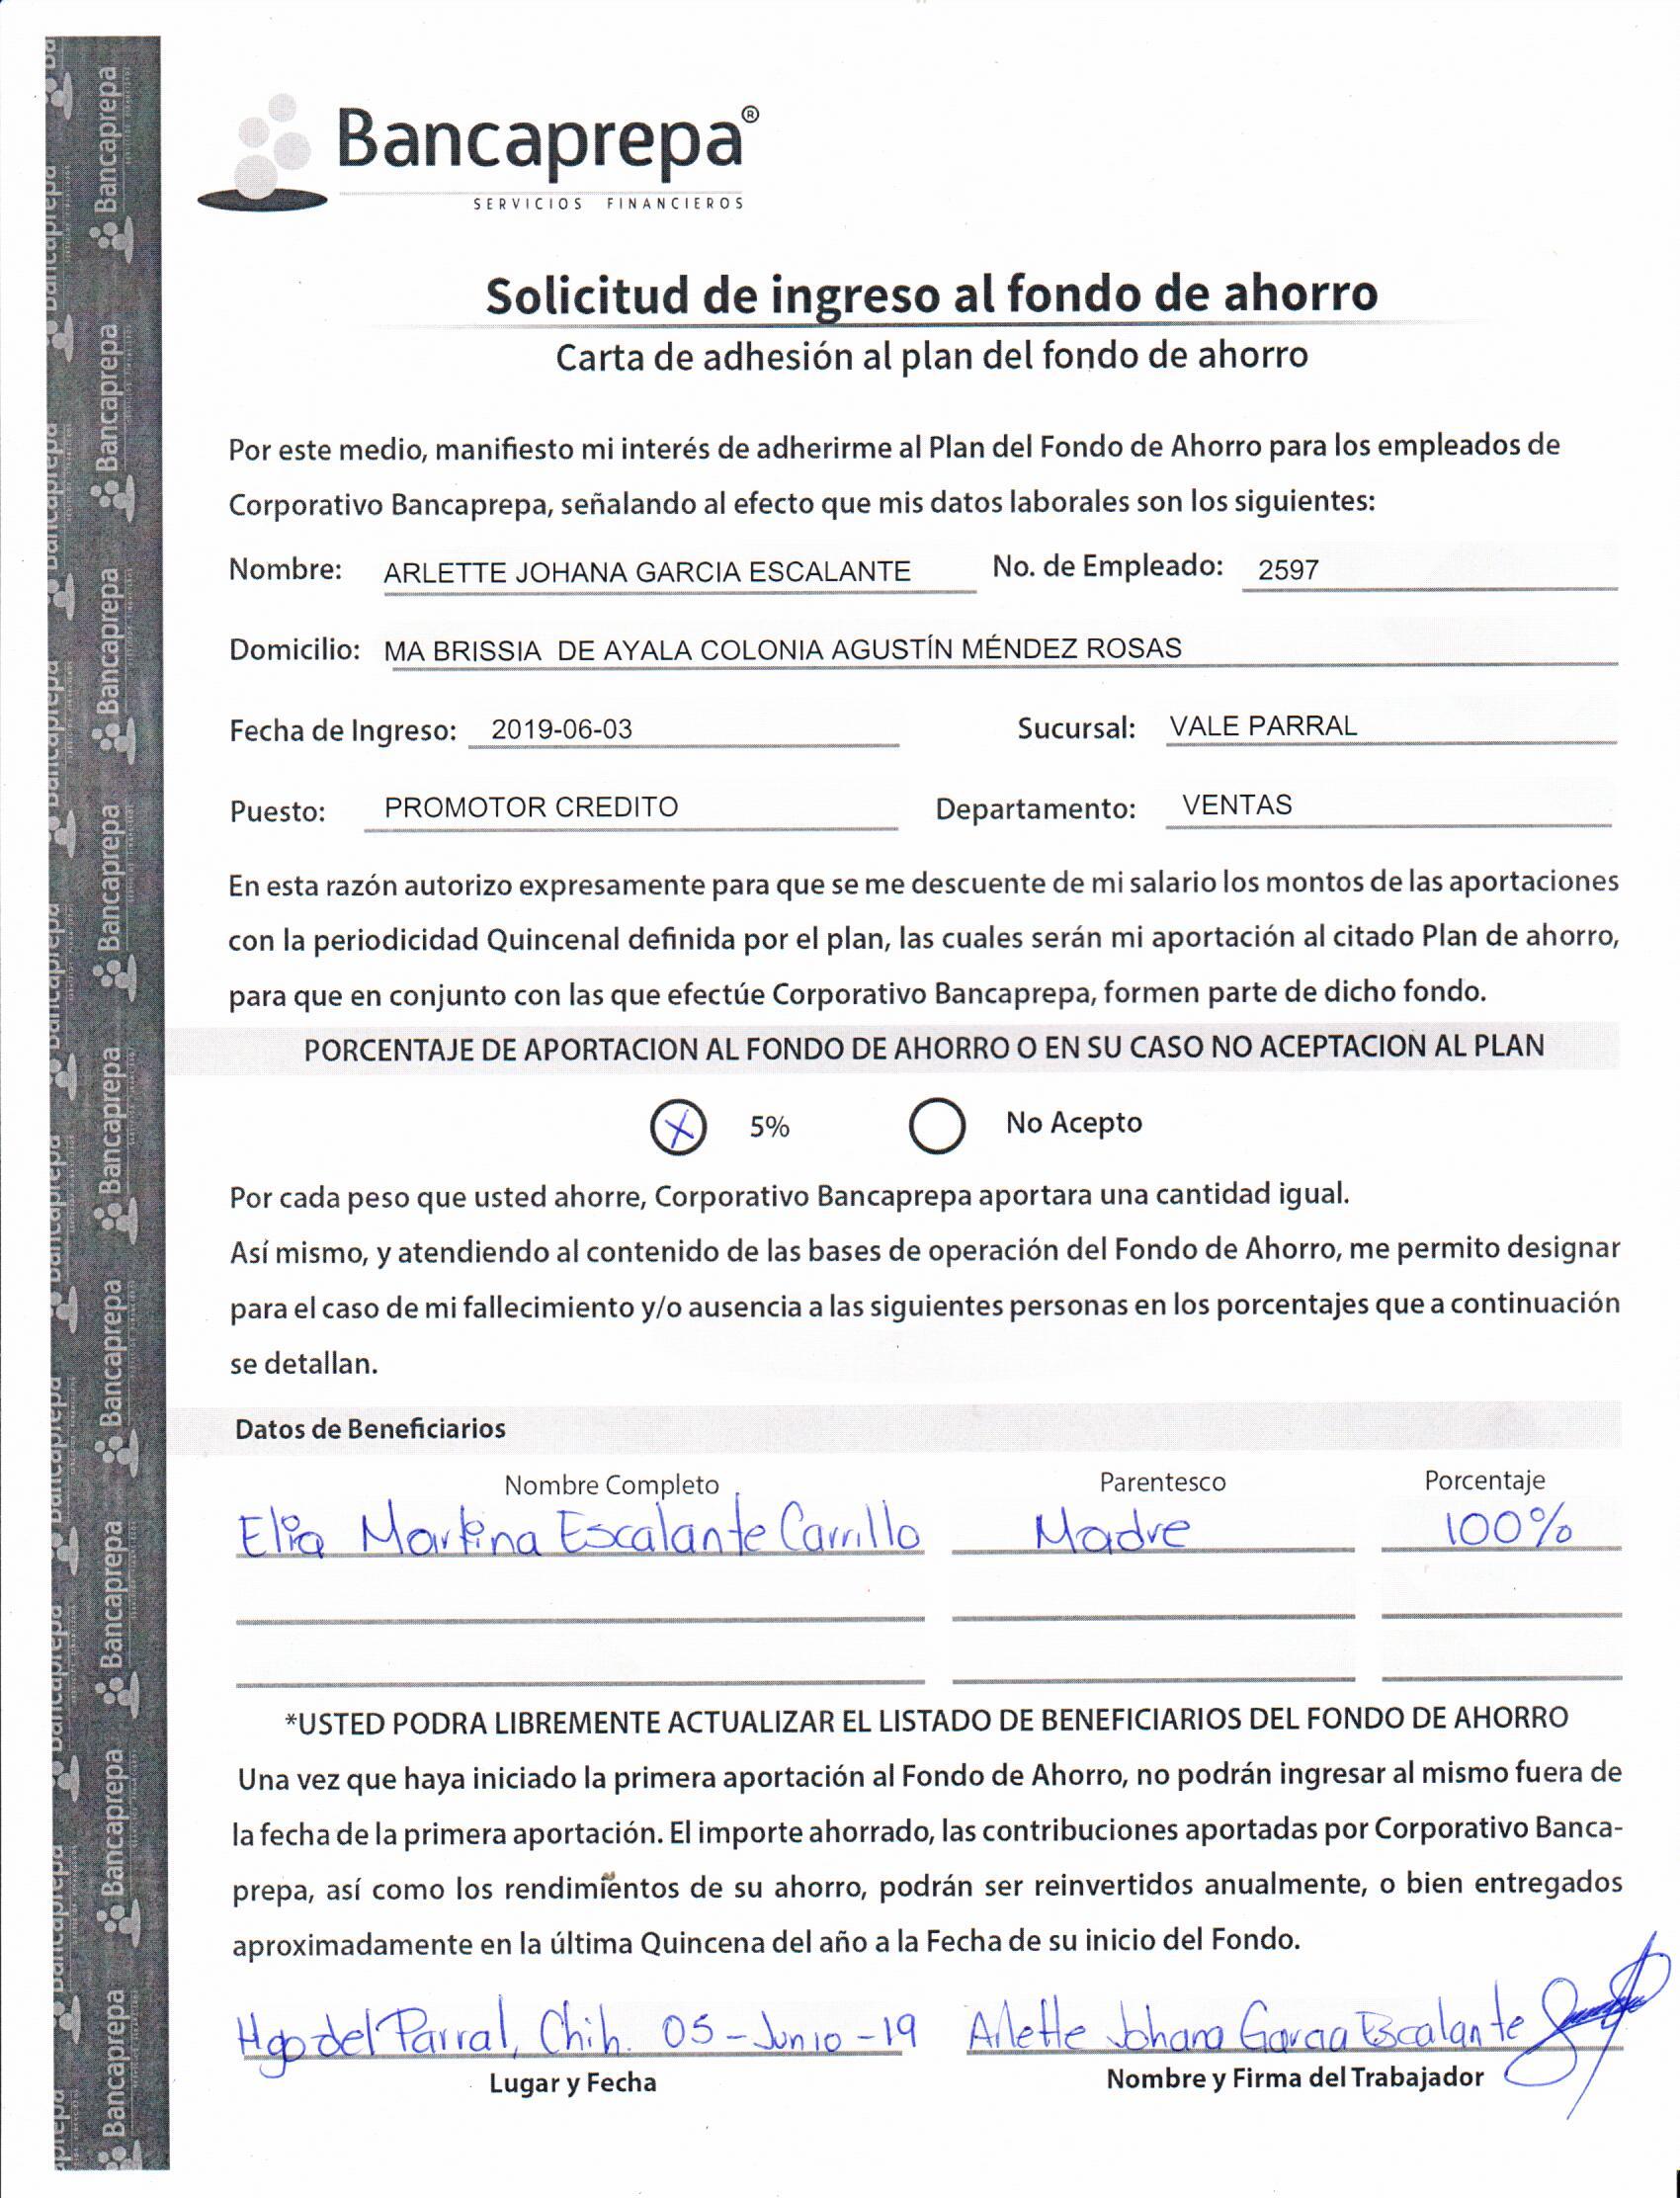 Bancaprepa®
SERVICIOS FINANCIEROS
Solicitud de ingreso al fondo de ahorro
Carta de adhesión al plan del fondo de ahorro
Por este medio, manifiesto mi interés de adherirme al Plan del Fondo de Ahorro para los empleados de
Corporativo Bancaprepa, señalando al efecto que mis datos laborales son los siguientes:
Nombre: ARLETTE JOHANA GARCIA ESCALANTE No. de Empleado: 2597
Domicilio: MA BRISSIA DE AYALA COLONIA AGUSTÍN MÉNDEZ ROSAS
Fecha de Ingreso: 2019-06-03 Sucursal: VALE PARRAL
Puesto: PROMOTOR CREDITO Departamento: VENTAS
En esta razón autorizo expresamente para que se me descuente de mi salario los montos de las aportaciones
con la periodicidad Quincenal definida por el plan, las cuales serán mi aportación al citado Plan de ahorro,
para que en conjunto con las que efectúe Corporativo Bancaprepa, formen parte de dicho fondo.
PORCENTAJE DE APORTACION AL FONDO DE AHORRO O EN SU CASO NO ACEPTACION AL PLAN
X 5% No Acepto
Por cada peso que usted ahorre, Corporativo Bancaprepa aportara una cantidad igual.
Así mismo, y atendiendo al contenido de las bases de operación del Fondo de Ahorro, me permito designar
para el caso de mi fallecimiento y/o ausencia a las siguientes personas en los porcentajes que a continuación
se detallan.
Datos de Beneficiarios
Nombre Completo Parentesco Porcentaje
Elia Martina Escalante Carrillo Madre 100%
*USTED PODRA LIBREMENTE ACTUALIZAR EL LISTADO DE BENEFICIARIOS DEL FONDO DE AHORRO
Una vez que haya iniciado la primera aportación al Fondo de Ahorro, no podrán ingresar al mismo fuera de
la fecha de la primera aportación. El importe ahorrado, las contribuciones aportadas por Corporativo Banca-
prepa, así como los rendimientos de su ahorro, podrán ser reinvertidos anualmente, o bien entregados
aproximadamente en la última Quincena del año a la Fecha de su inicio del Fondo.
Hgo del Parral, Chih. 05-Junio-19 Arlette Johana Garcia Escalante
Lugar y Fecha Nombre y Firma del Trabajador